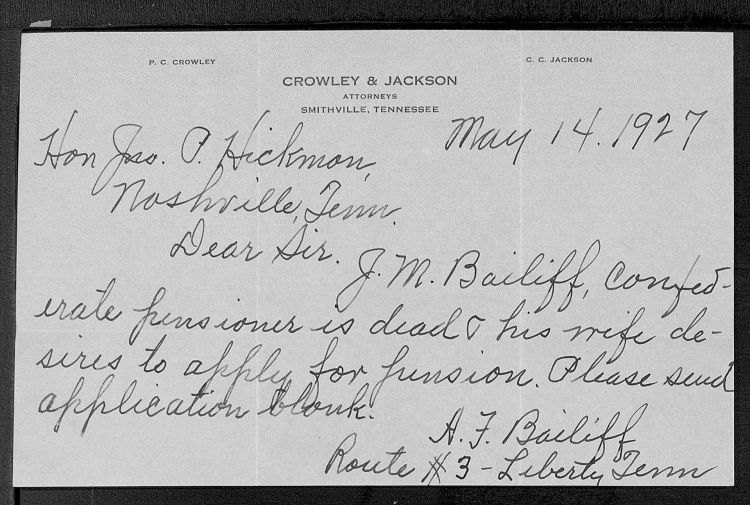 P. C. CROWLEY
C. C. JACKSON
CROWLEY & JACKSON
ATTORNEYS
SMITHVILLE, TENNESSEE
May 14. 1927
Hon Jno. P. Hickmon,
Nashville, Tenn.
Dear Sir.
J. M. Bailiff, Confed-
erate pensioner is dead & his wife de-
sires to apply for pension. Please send
application blank.
A. F. Bailiff
Route # 3 - Liberty Tenn